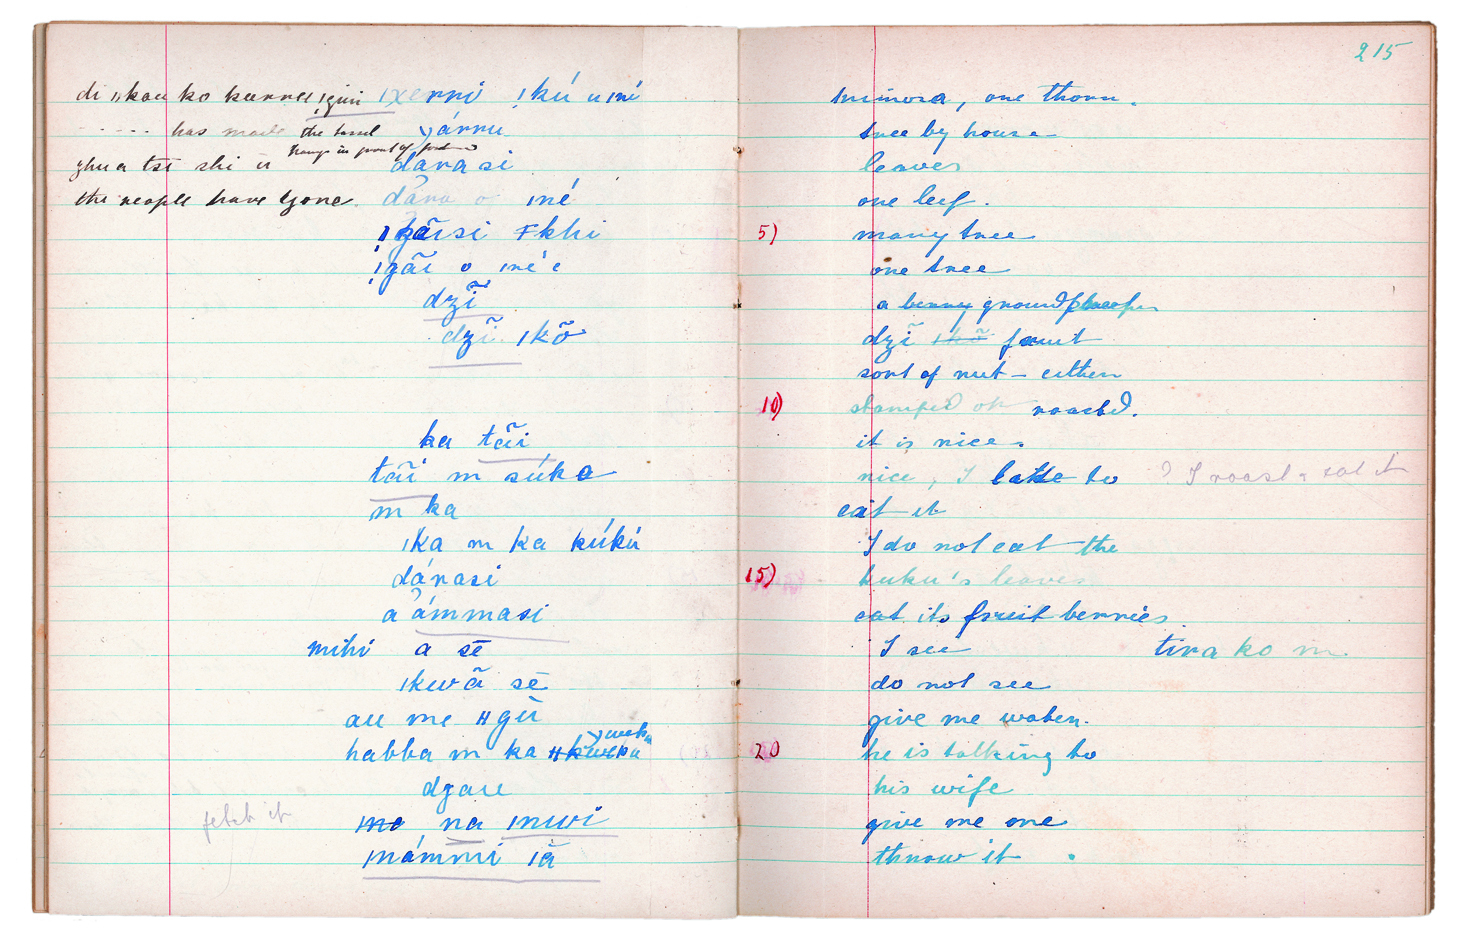 di ǁkau ko karree ǃgiri ǀxerri ǃkú u ǀné
..... has made the tassel yárru
hangs in front of
ghua tsi shi u dārasi
the people have gone. dára o ǀné
ǃgāisi ǂkhi
ǃgāi o ǀné e
dzĩ
dzĩ ǀkõ
ka tãi
tãi m súka
m ka
ǀka m ka kúkú
dárasi
a ámmasi
mihi a sē
ǀkwã sē
au me ǁgū
habba m ka yweku
dgau
fetch it ǀme na ǀnwi
ǀnámmi ǀā
215
mimosa, one thorn.
tree by house
leaves
one leef.
5) many tree
one tree
a berry ground
dzĩ ǀkõ fruit
sort of nut – either
10) stamped or roasted.
it is nice
nice, I like to ? I roast & eat it
eat it
I do not eat the
15) kuku's leaves
eat its fruit berries
I see tira ko m
do not see
give me water.
20 he is talking to
his wife
give me one
throw it .